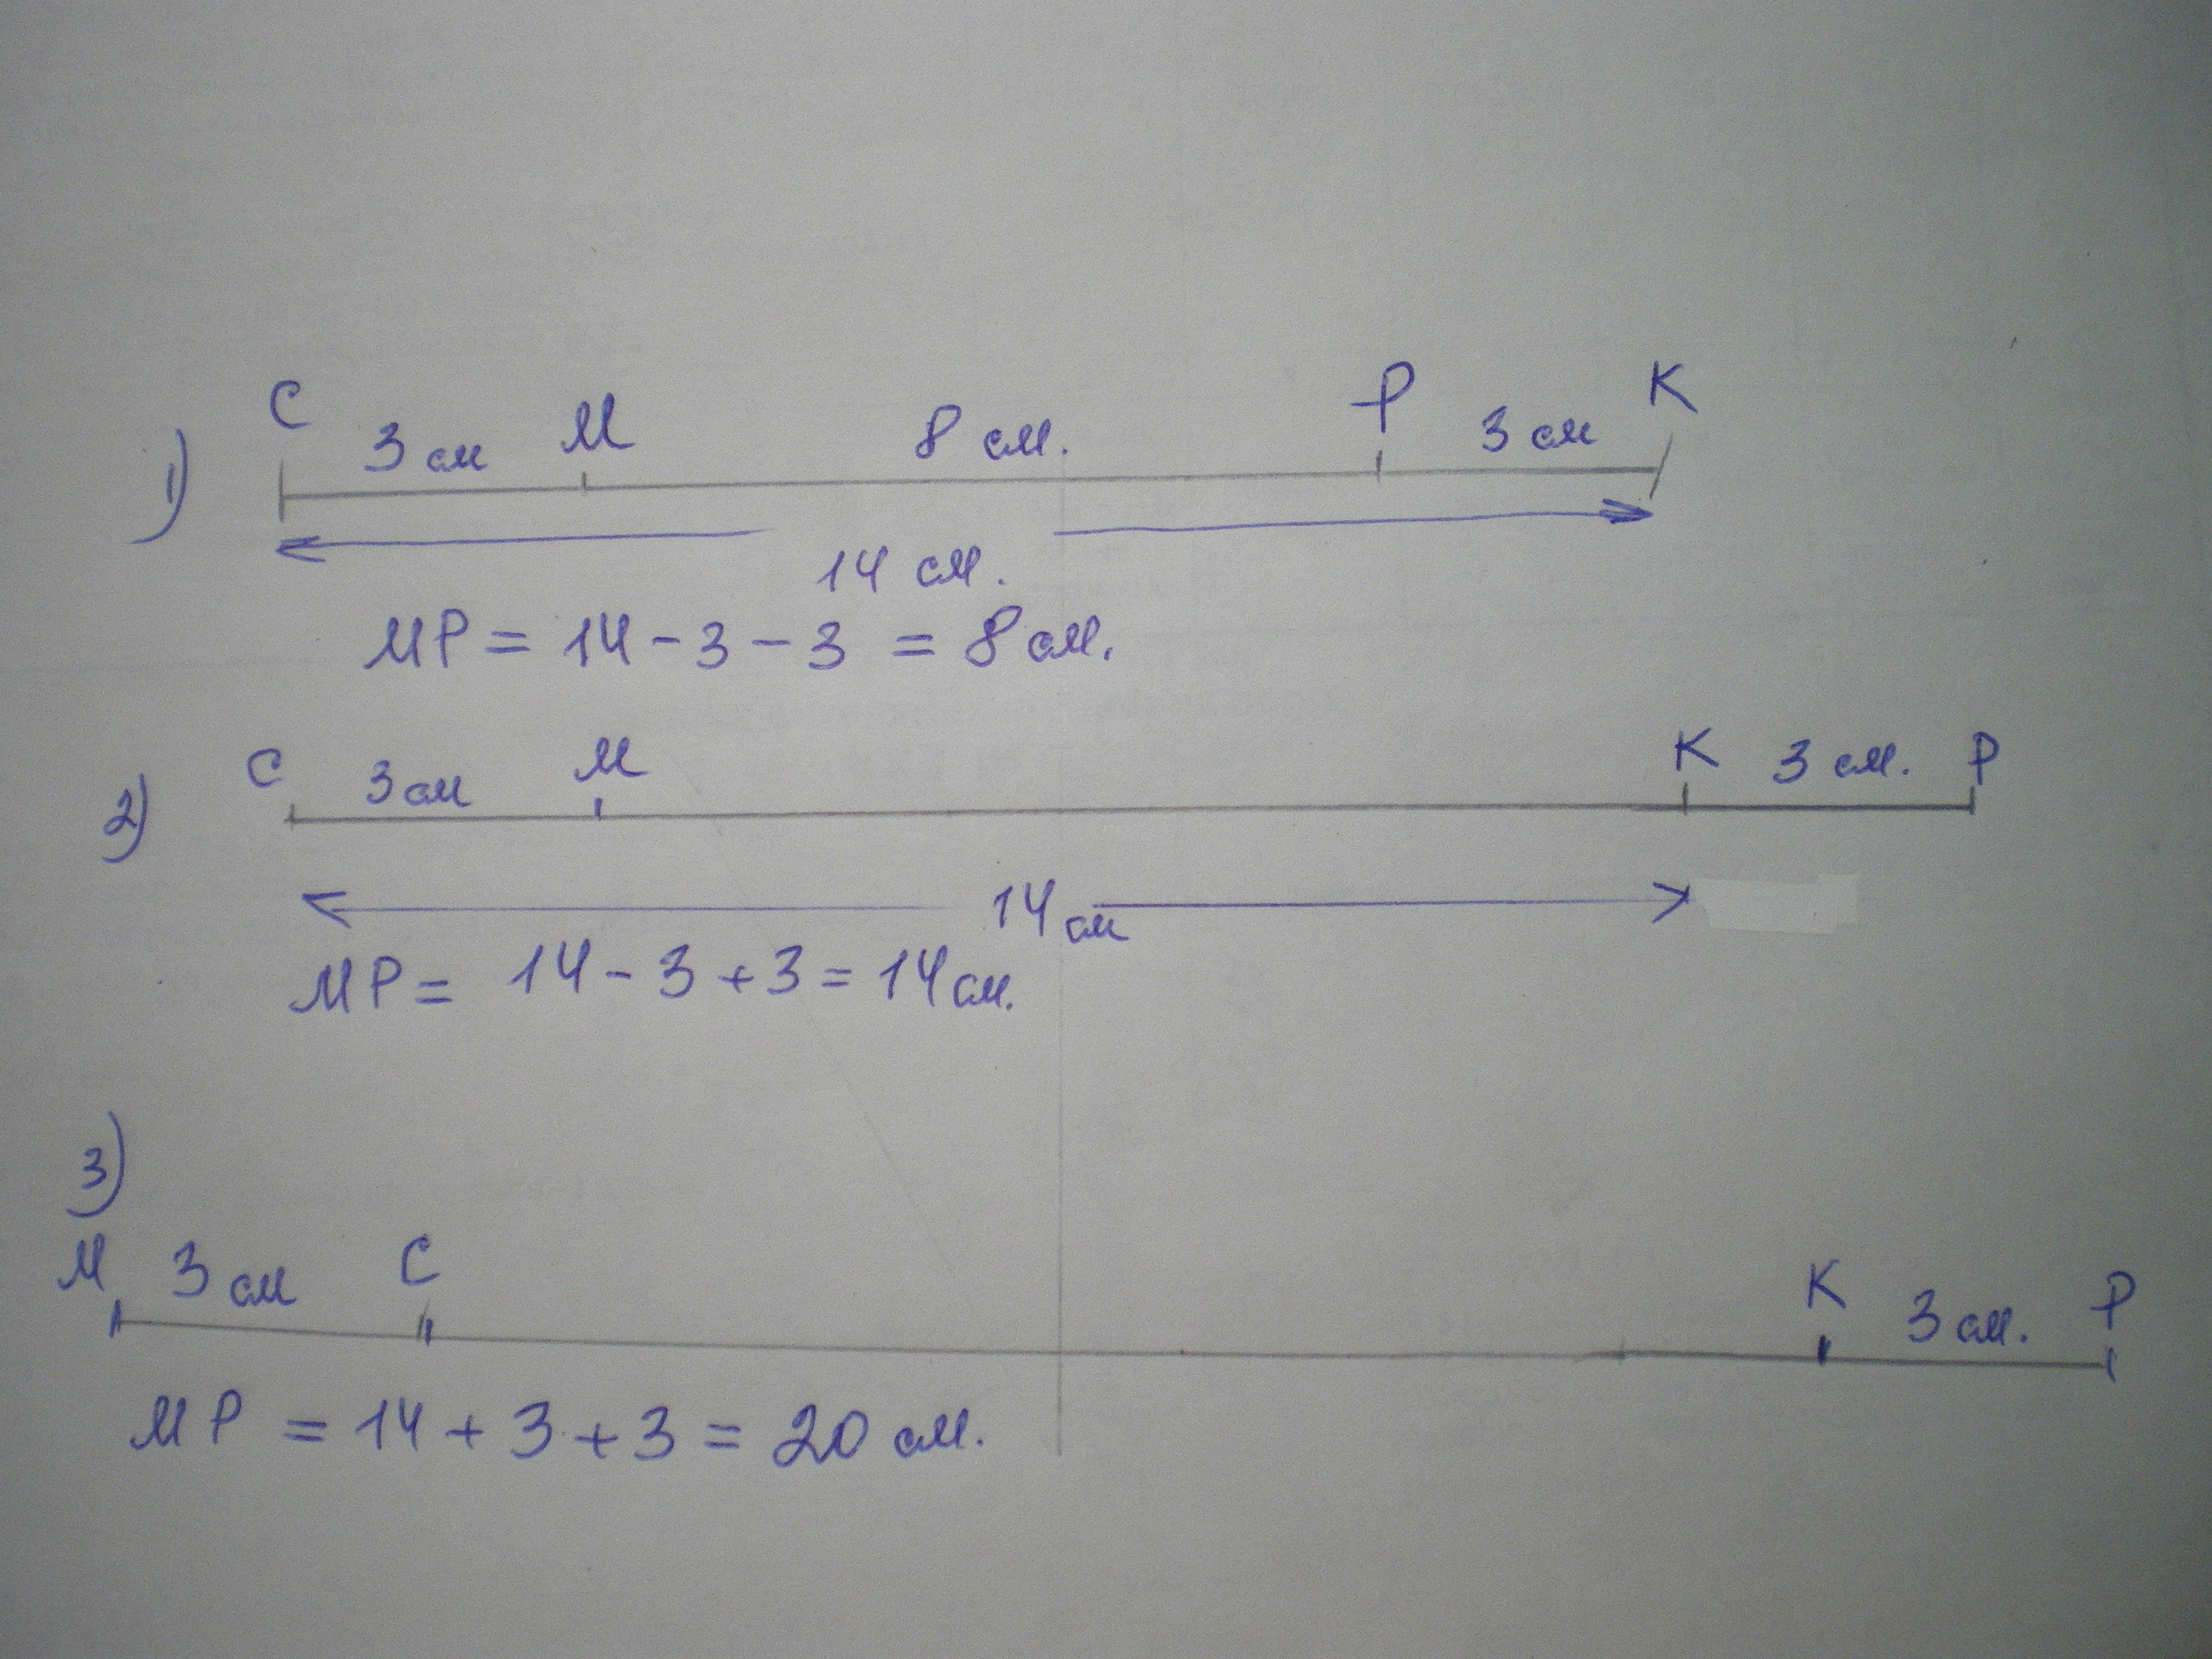 1) С 3 см М 8 см. Р 3 см К
14 см.
МР = 14 - 3 - 3 = 8 см.
2) С 3 см М К 3 см. Р
14 см
МР = 14 - 3 + 3 = 14 см.
3)
М 3 см С К 3 см. Р
МР = 14 + 3 + 3 = 20 см.